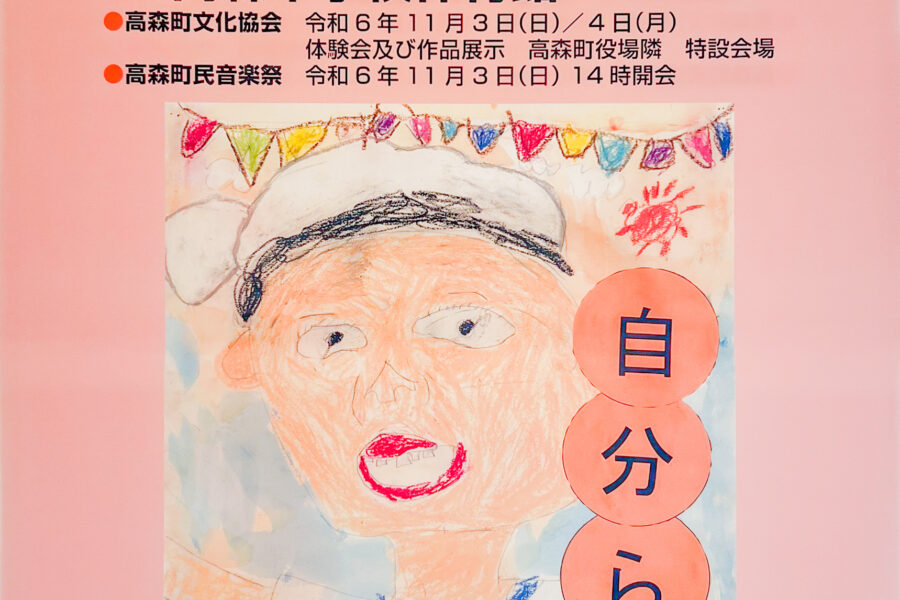 ●高森町文化協会　令和6年11月3日(日)／4日(月)
体験会及び作品展示　高森町役場隣　特設会場
●高森町民音楽祭　令和6年11月3日(日) 14時開会
自分ら